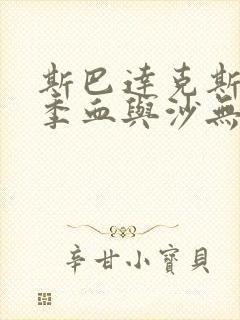 斯巴達克斯
季血與沙無
辛甘小寶貝